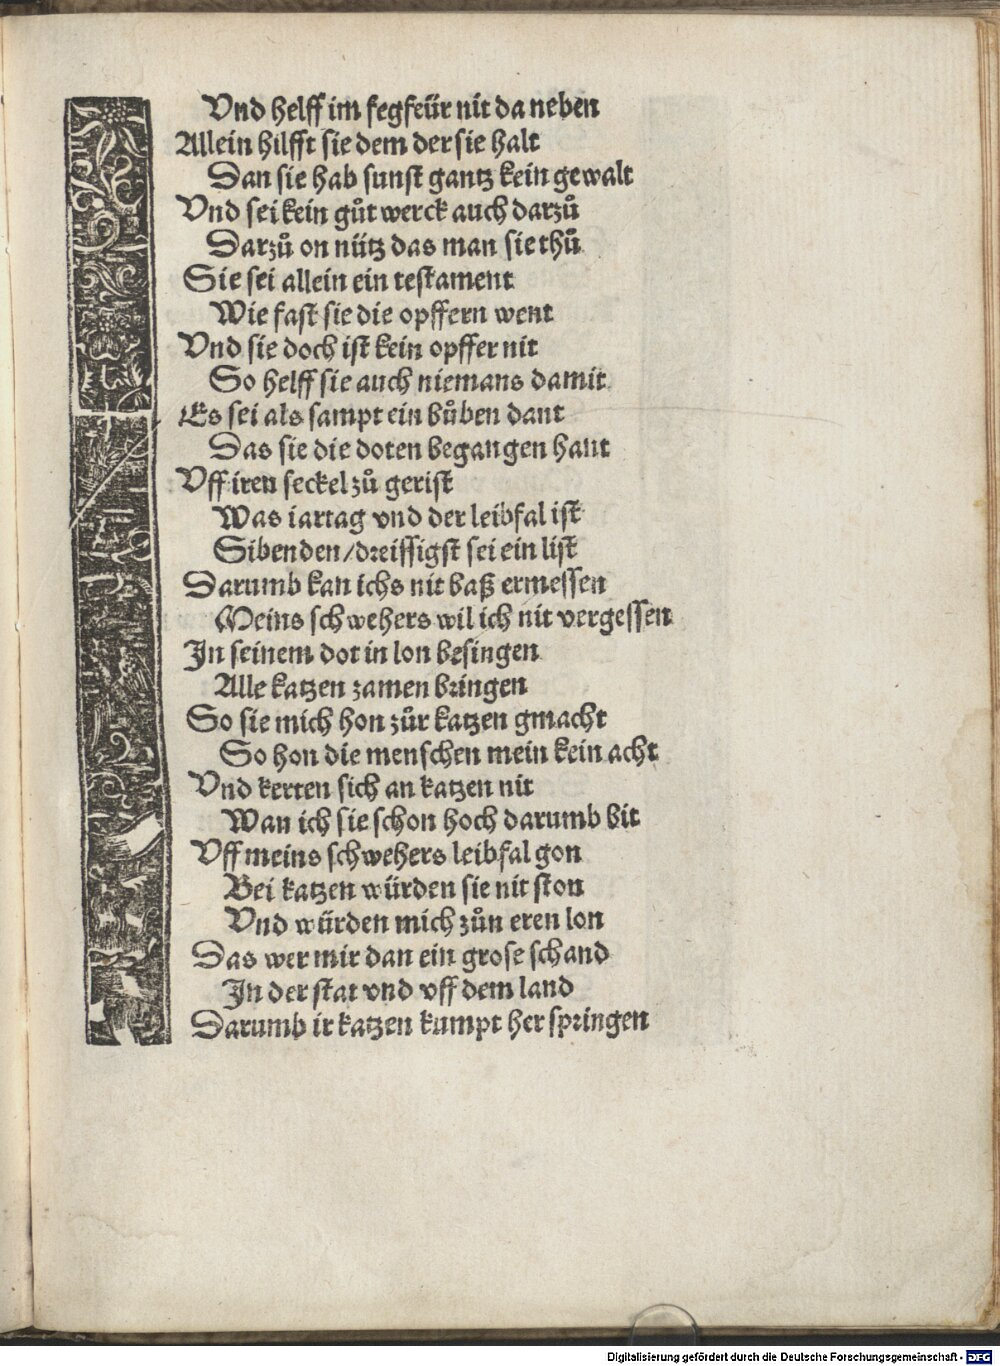 Vnd helff im fegfeür nit da neben
Allein hilfft sie dem der sie halt
Dan sie hab sunst gantz kein gewalt
Vnd sei kein gůt werck auch darzů
Darzů on nütz das man sie thů
Sie sei allein ein testament
Wie fast sie die opffern went
Vnd sie doch ist kein opffer nit
So helff sie auch niemans damit
Es sei als sampt ein bůben dant
Das sie die doten begangen hant
Vff iren seckel zů gerist
Was iartag vnd der leibfal ist
Sibenden/dreissigst sei ein list
Darumb kan ichs nit baß ermessen
Meins schwehers wil ich nit vergessen
In seinem dot in lon besingen
Alle katzen zamen bringen
So sie mich hon zůr katzen gmacht
So hon die menschen mein kein acht
Vnd kerten sich an katzen nit
Wan ich sie schon hoch darumb bit
Vff meins schwehers leibfal gon
Bei katzen würden sie nit ston
Vnd würden mich zůn eren lon
Das wer mir dan ein grose schand
In der stat vnd vff dem land
Darumb ir katzen kumpt her springen
Digitalisierung gefördert durch die Deutsche Forschungsgemeinschaft - DFG